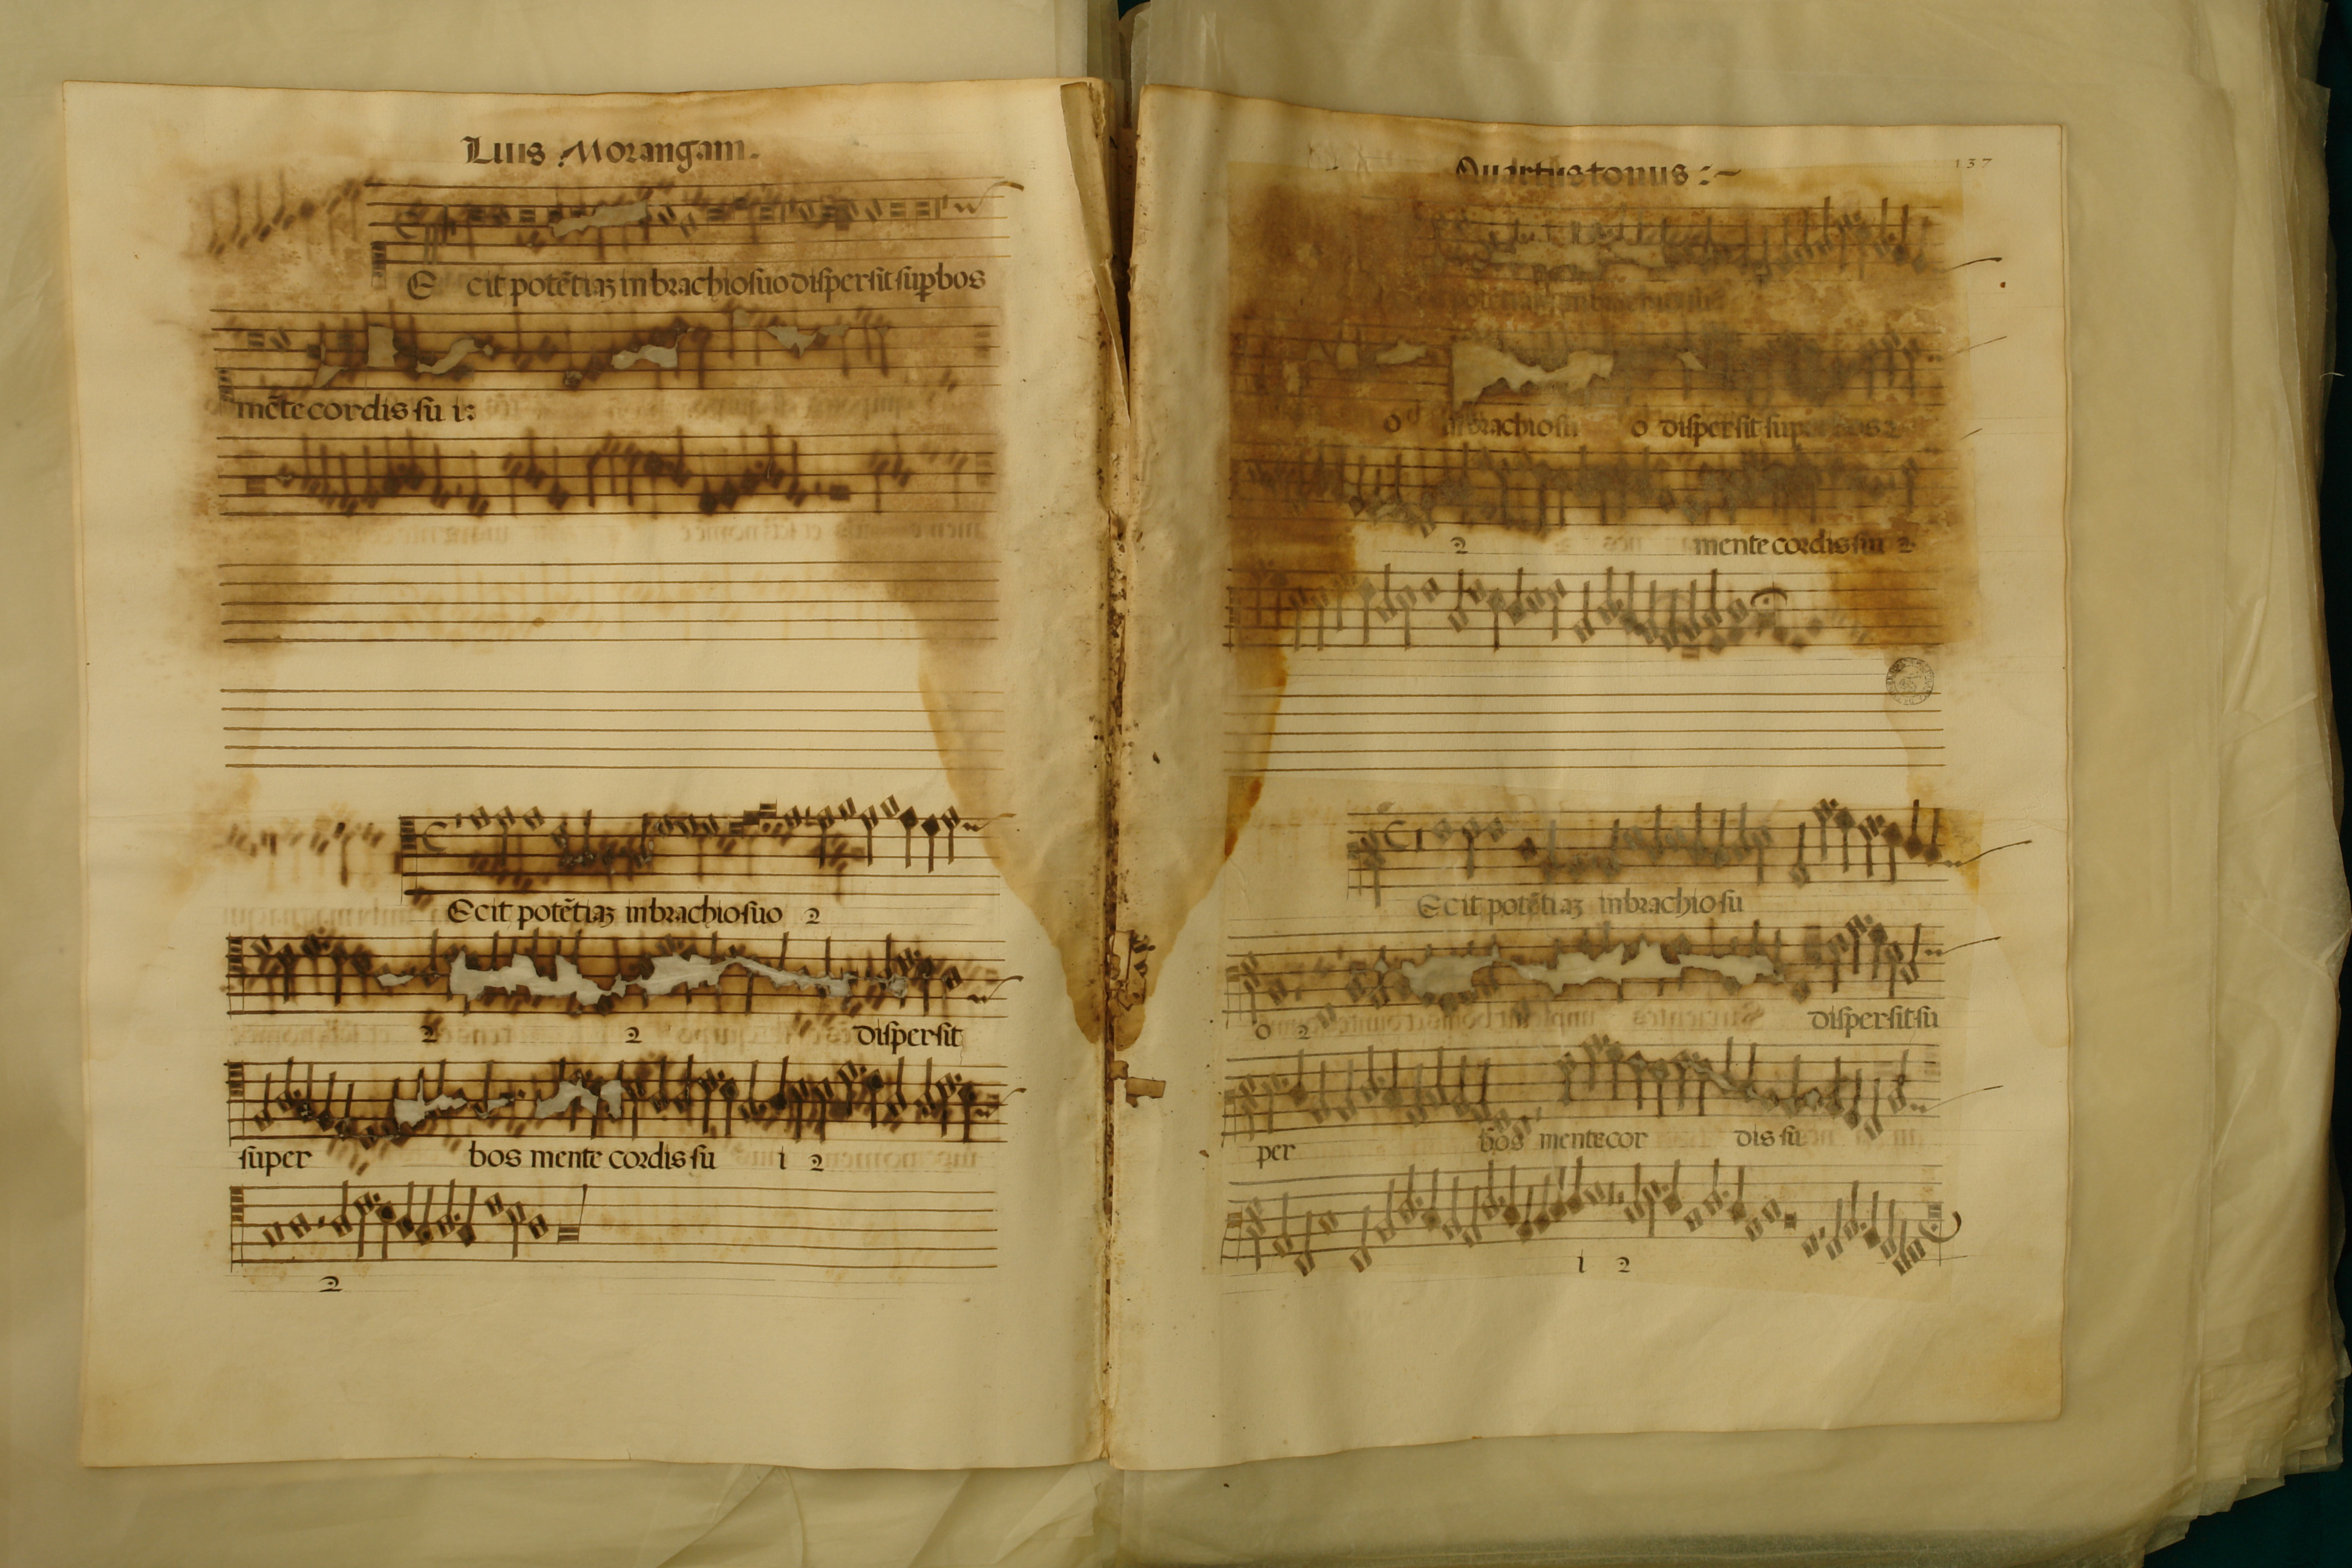 Luis Morangam.
E cit potẽtiaz in brachio suo dispersit supbos
mẽte cordis su i:
Ecit potẽtiaz in brachio suo 2
2 2 dispersit
super bos mente cordis su i 2
2
Quartus tonus :~
137
Ecit potẽtiaz in brachio su
o in brachio su o dispersit sup bos 2
2 mente cordis sui 2
Ecit potẽtiaz in brachio su
o 2 dispersit su
per bos mente cor dis su
i 2